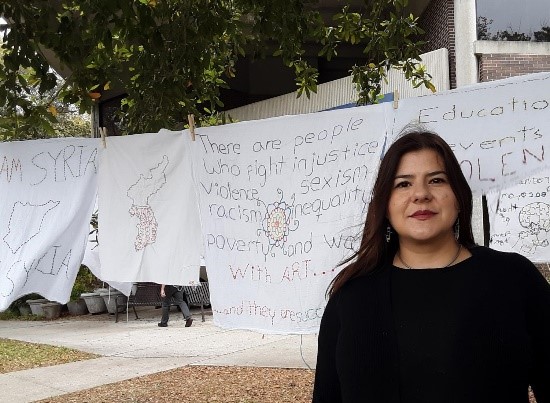 AM SYRIA
SYRIA
There are people
who fight injustice
violence, sexism
racism inequality
poverty and wa
WITH ART....
...and they are succ
Educatio
events
OLEN